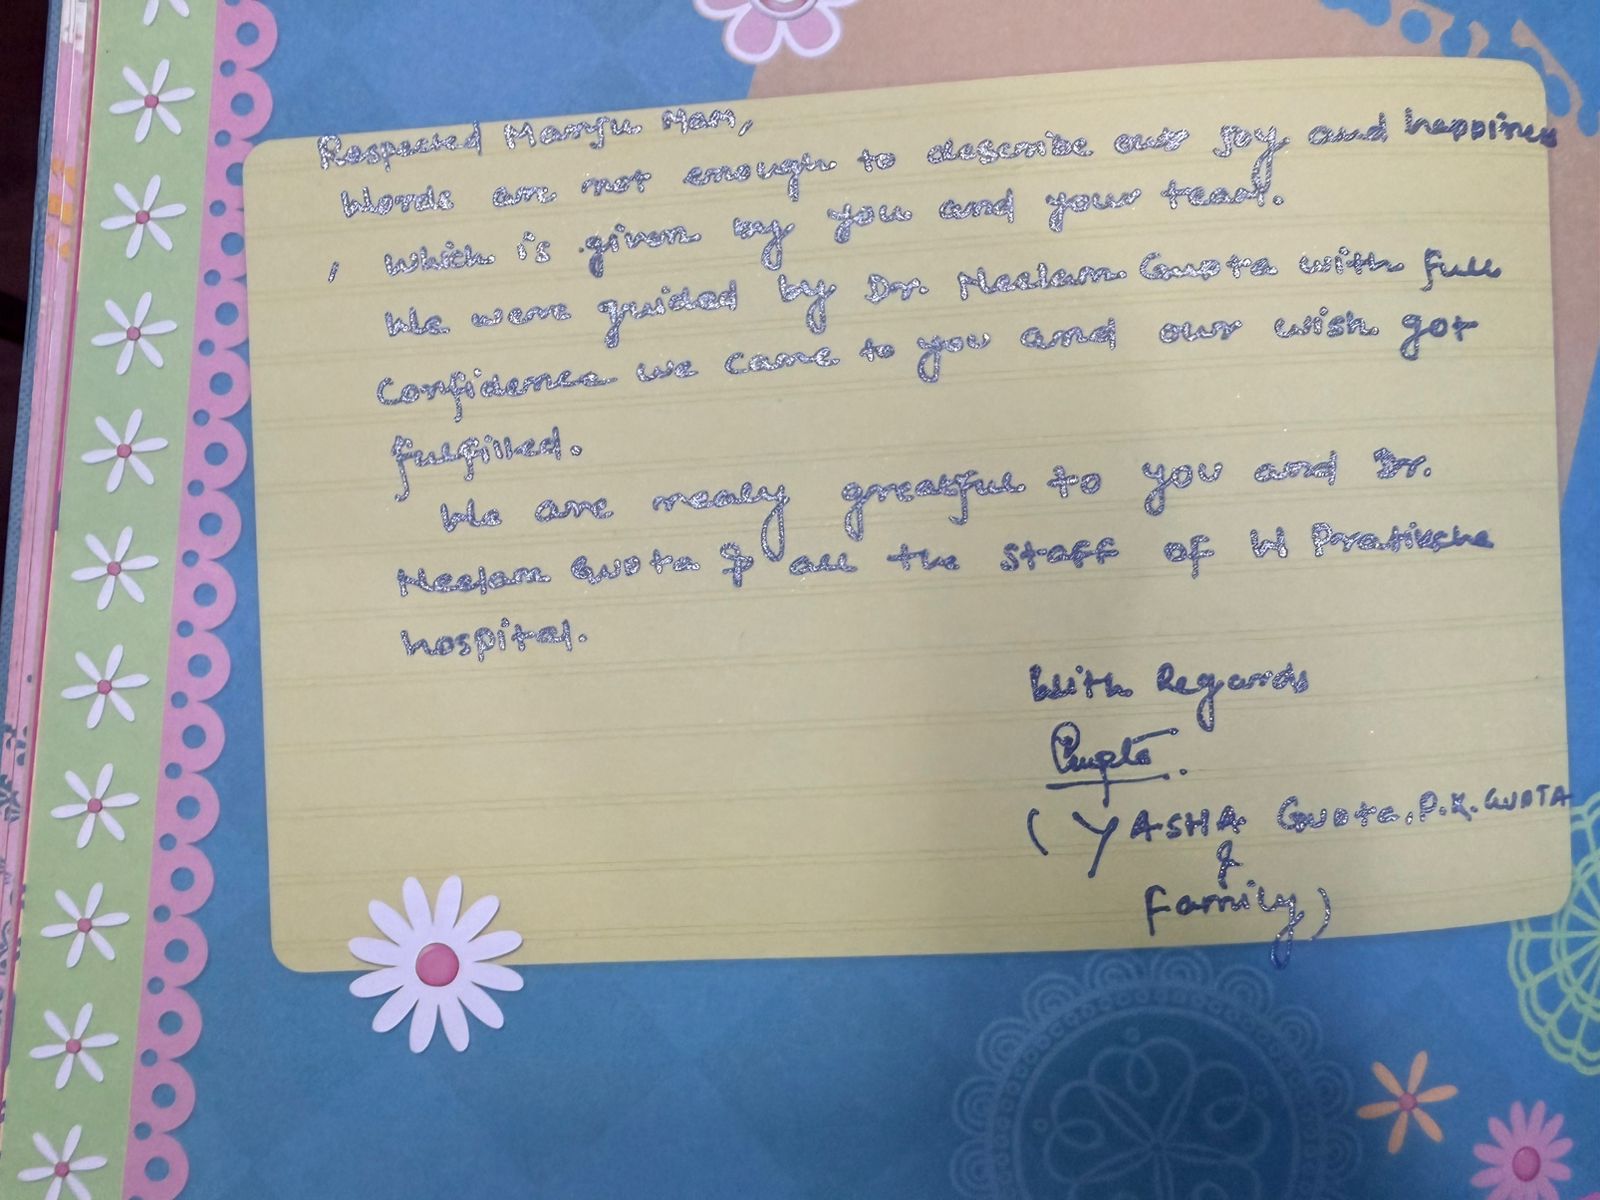 Respected Manju Mam,
Words are not enough to describe our joy and happiness
, which is given by you and your team.
We were guided by Dr. Neelam Gupta with full
confidence we came to you and our wish got
fulfilled.
We are realy greatful to you and Dr.
Neelam Gupta & all the staff of W Pratiksha
hospital.
With Regards
Gupta
(YASHA Gupta, P.K. GUPTA
&
Family)